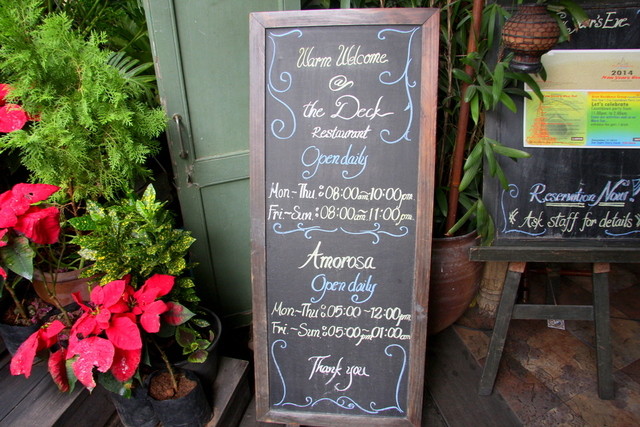 Warm Welcome
@
the Deck
Restaurant
Open daily
Mon~Thu: 08:00am 10:00pm
Fri~Sun: 08:00am 11:00pm
Amorosa
Open daily
Mon~Thu: 05:00~12:00pm
Fri~Sun: 05:00pm 01:00am
Thank you
Year's Eve
2014
Let's celebrate
Reservation Now!
* Ask staff for details *